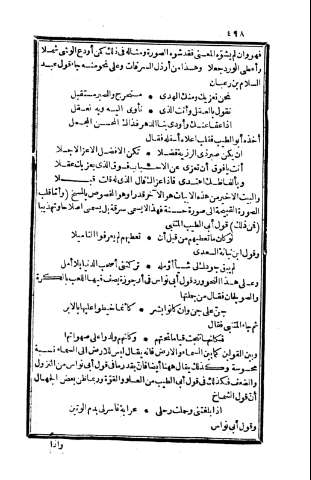 ٤٩٨
فهو وان لم يشوه المعنى فقد شوه الصورة ومثاله فى ذلك كمن أودع الوشى شملا
وأعطى الورد جعلا وهذا من أرذل السرقات وعلى نحو منه جاء قول عبد
السلام بن رغبان
نحن نعزيك ومنك الهدى • مستخرج والصبر مستقبل
نقول بالعقل وأنت الذى • نأوى اليه وبه نعقل
اذا عفا عنك وأودى بنا الدهر فذاك المحسن المجمل
أخذه أبو الطيب فقلب أعلاه أسفله فقال
ان يكن صبر ذى الرزية فضلا • تكن الافضل الاعز الاجلا
أنت يافوق أن تعزى عن الاحباب فوق الذى يعزيك عقلا
وبألفاظك اهتدى فاذا عزاك قال الذى له قلت قبلا
والبيت الاخير من هذه الابيات هو الآخر قدرا وهو المخصوص بالمسخ (وأما قلب
الصورة القبيحة الى صورة حسنة فهذا لا يسمى سرقة بل يسمى اصلاحا وتهذيبا
(فن ذلك) قول أبى الطيب المتنبى
لو كان ما تعطيهم من قبل أن • تعطيهم لم يعرفوا التاميلا
وقول ابن نباتة السعدى
لم يبق جودك لى شيأ أؤمله • تركتنى أصحب الدنيا بلا أمل
وعلى هذا النحو ورد قول أبى نواس فى أرجوزة يصف فيها اللعب بالكرة
والصولجان فقال من جملتها
جن على جن وان كانوا بشر • كأنما خيطوا عليها بالابر
ثم جاء المتنبى فقال
فكأنها نتجت قياما تحتهم • وكأنهم ولدوا على صهواتها
وبين القولين كما بين السماء والارض فانه يقال ليس للارض الى السماء نسبة
محسوسة وكذلك يقال ههنا أيضا فان بقدر ما فى قول أبى نواس من النزول
والضعف فكذلك فى قول أبى الطيب من العلو والقوة وربما ظن بعض الجهال
أن قول الشماخ
اذا بلغتنى وحملت رحلى • عرابة فاشرقى بدم الوتين
وقول أبى نواس
واذا